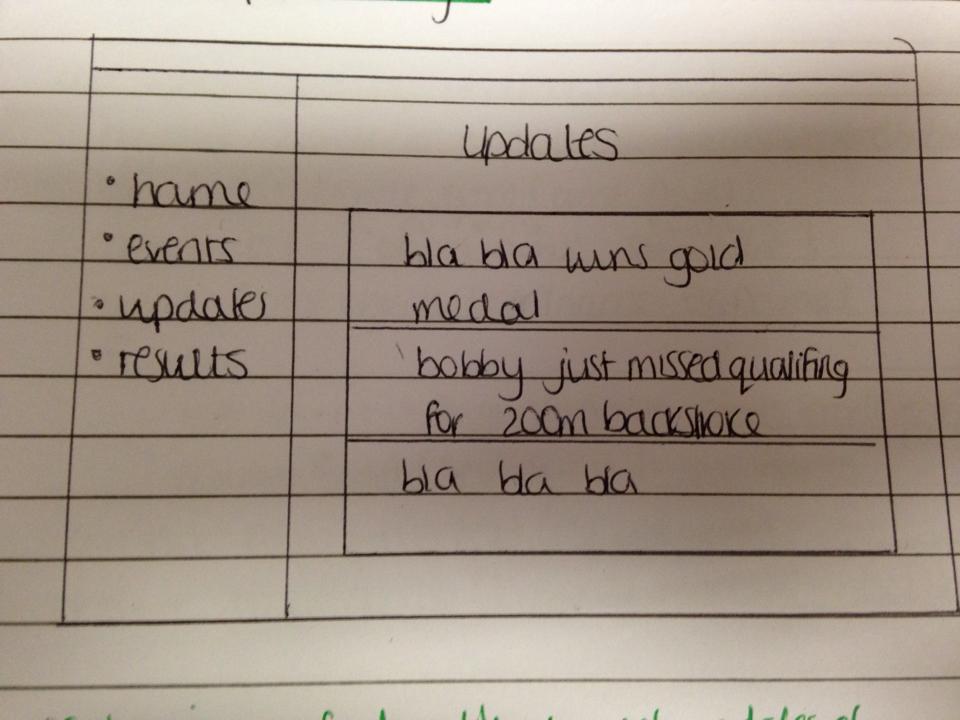 Updates
• name
• events
• updates
• results
bla bla wins gold
medal
bobby just missed qualifing
for 200m backstroke
bla bla bla